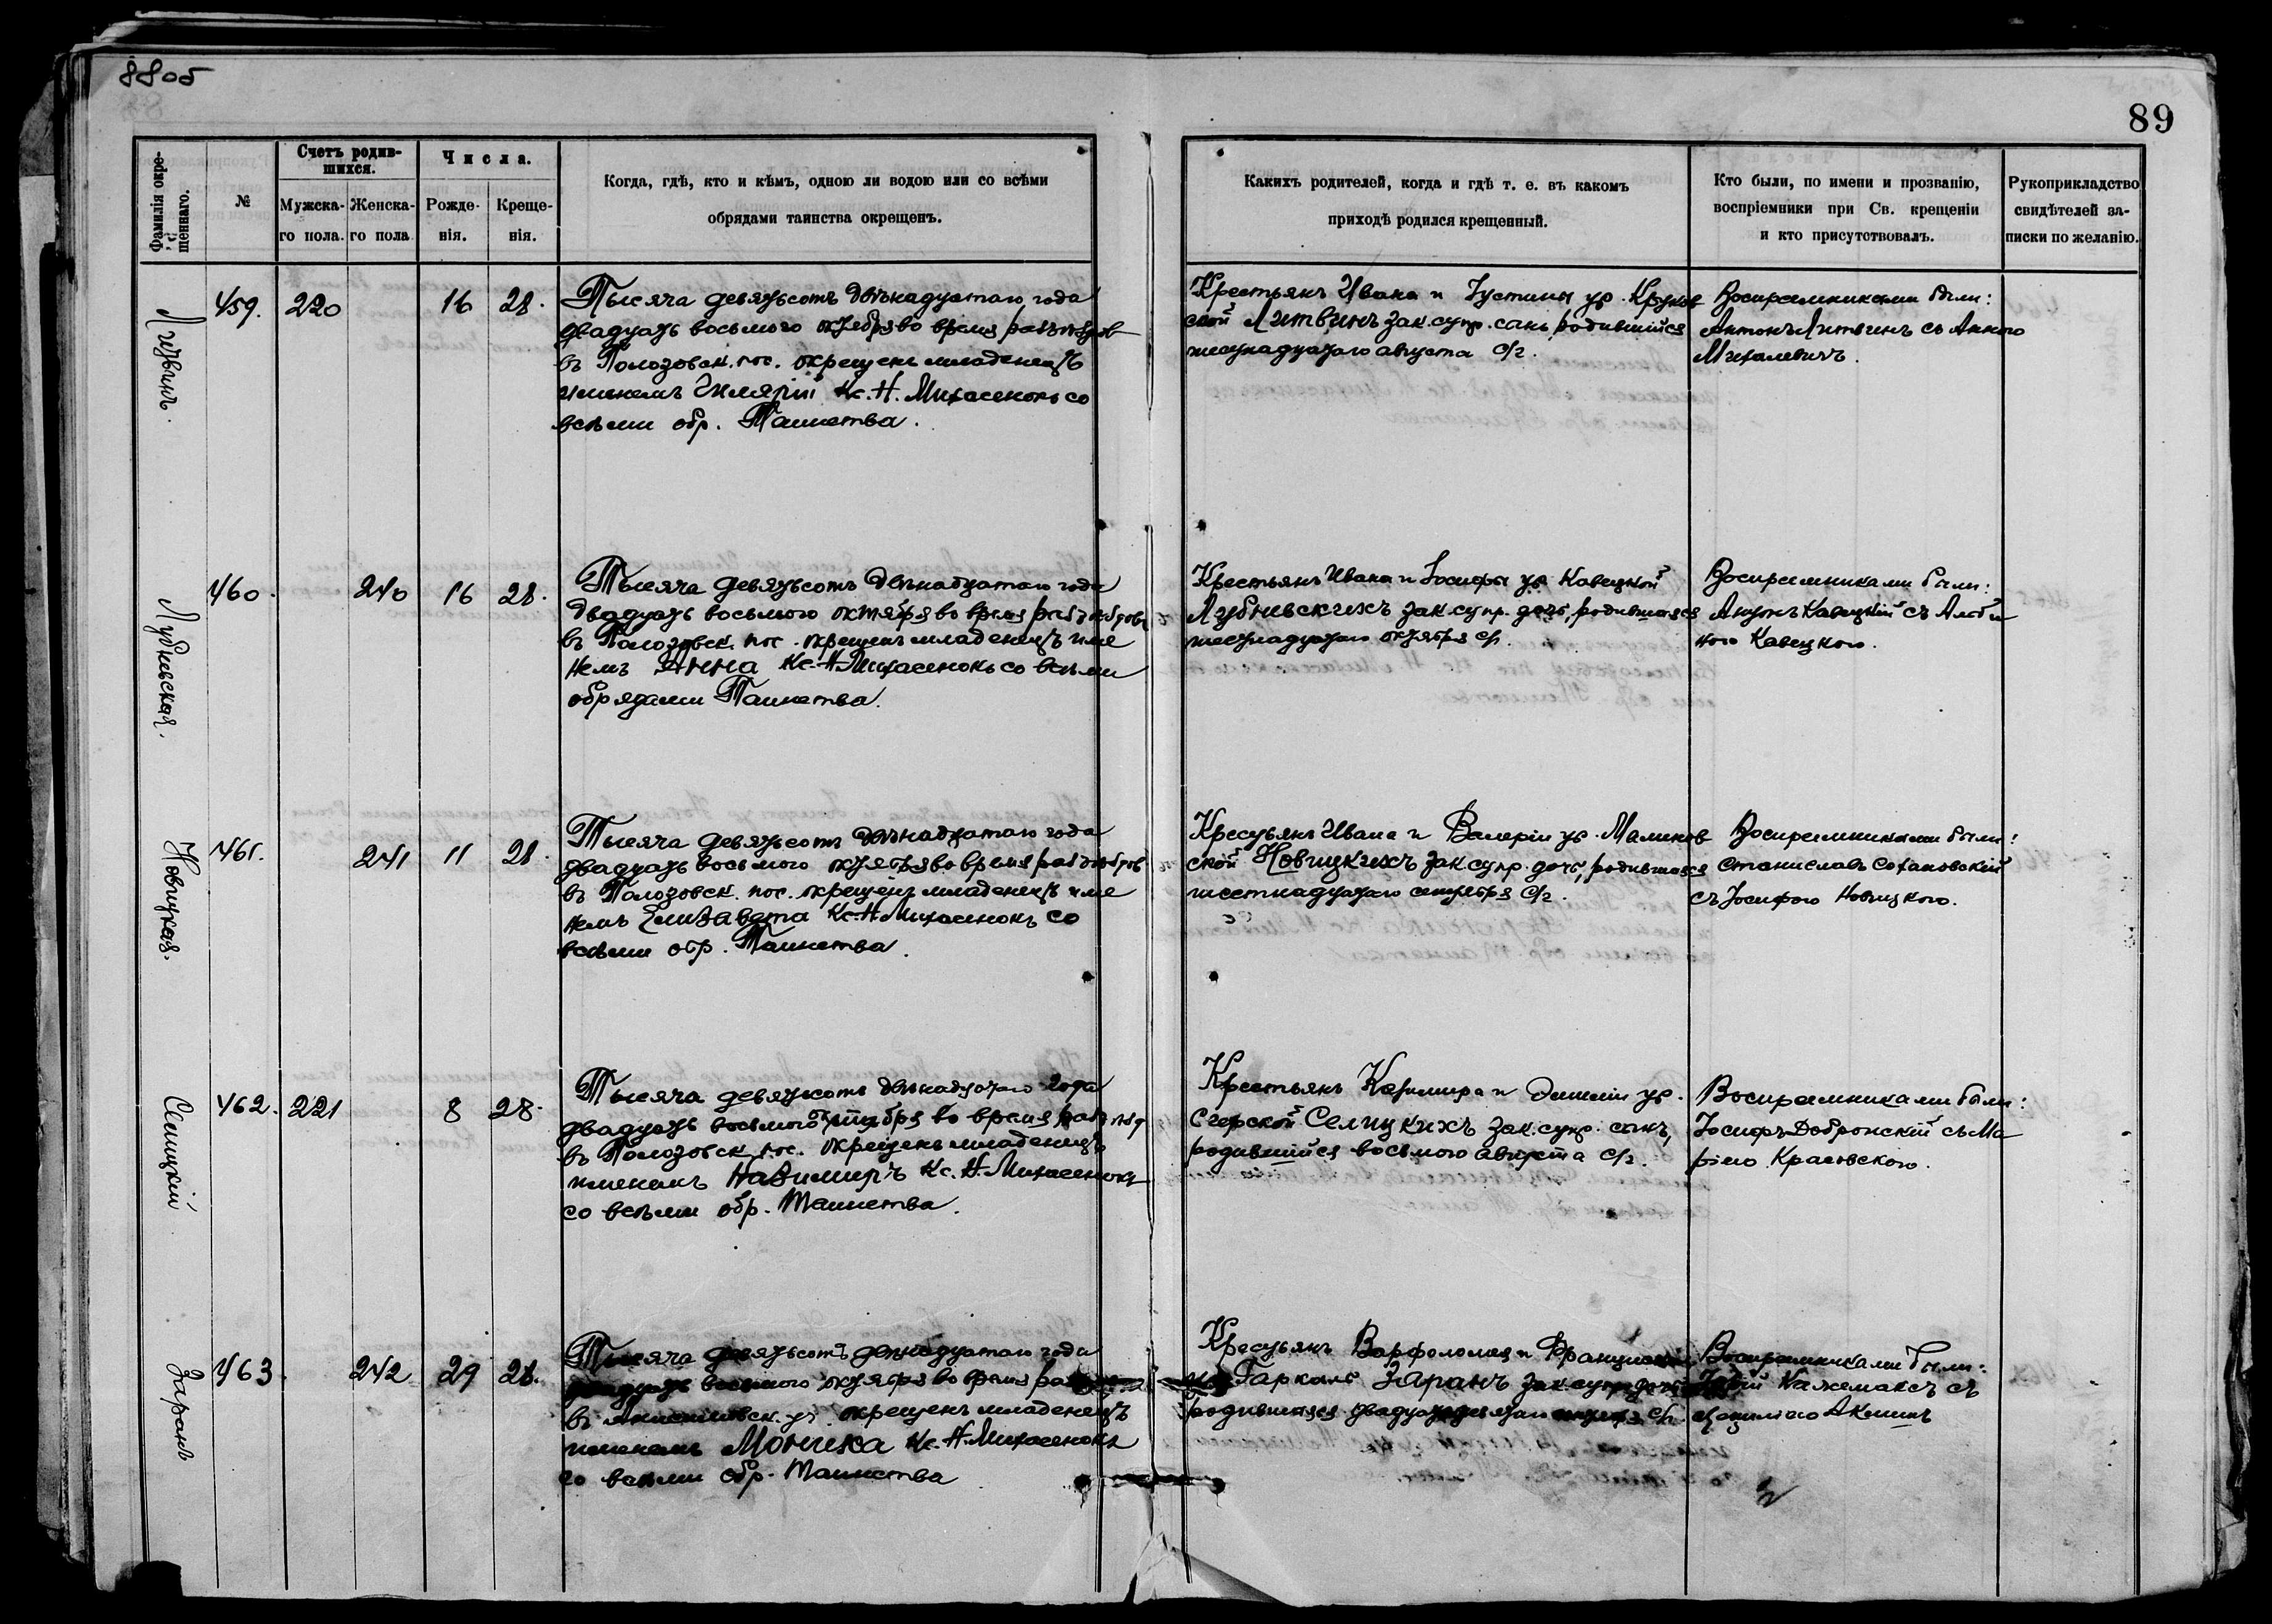 88об
89
Фамилія окре-
щеннаго.
№
Счетъ родив-
шихся.
Мужска-
го пола.
Женска-
го пола
Числа.
Рожде-
нія.
Креще-
нія.
Когда, гдѣ, кто и кѣмъ, одною ли водою или со всѣми
обрядами таинства окрещенъ.
Какихъ родителей, когда и гдѣ т. е. въ какомъ
приходѣ родился крещенный.
Кто были, по имени и прозванію,
воспріемники при Св. крещеніи
и кто присутствовалъ.
Рукоприкладство
свидѣтелей за-
писки по желанію.
Литвинъ.
459. 220 16 28.
Тысяча девятьсотъ двѣнадцатаго года
двадцать восьмого октября во время
въ Полозовск. пос. окрещенъ младенецъ
именемъ Гиляріи Кс. Н. Михасенокъ со
всѣми обр. Таинства.
Крестьянъ Ивана и Іустины ур. Круков
ской Литвинъ зак. супр. сынъ, родившійся
шестнадцатаго августа с/г.
Воспремниками были:
Антонъ Литвинъ съ Анною
Михалевичъ.
Лубневская.
460. 240 16 28.
Тысяча девятьсотъ двѣнадцатаго года
двадцать восьмого октября во время
въ Полозовск. пос. окрещенъ младенецъ име
немъ Анна Кс. Н. Михасенокъ со всѣми
обрядами Таинства.
Крестьянъ Ивана и Іосифы ур. Кавецкой
Лубневскихъ зак. супр. дочь, родившаяся
шестнадцатаго октября с/г.
Воспремниками были:
Кавецкій съ Алби
ною Кавецкою.
Новицкая.
461. 241 11 28.
Тысяча девятьсотъ двѣнадцатаго года
двадцать восьмого октября во время
въ Полозовск. пос. окрещенъ младенецъ име
немъ Елизавета Кс. Н. Михасенокъ со
всѣми обр. Таинства.
Крестьянъ Ивана и Валеріи ур. Малинов
ской Новицкихъ зак. супр. дочь, родившаяся
шестнадцатаго с/г.
Воспремниками были:
Станиславъ Сохановскій
съ Іосифою Новицкою.
Селицкій
462. 221 8 28.
Тысяча девятьсотъ двѣнадцатаго года
двадцать восьмого октября во время
въ Полозовск. пос. окрещенъ младенецъ
именемъ Кс. Н. Михасенокъ
со всѣми обр. Таинства.
Крестьянъ Казимира и ур.
Селицкихъ зак. супр. сынъ,
родившійся восьмого августа с/г.
Воспремниками были:
Іосифъ Добронскій съ Ма
ріею Красовскою.
Заранъ
463. 242 29 28.
Тысяча девятьсотъ двѣнадцатаго года
двадцать восьмого октября во время
въ окрещенъ младенецъ
именемъ Моника Кс. Н. Михасенокъ
со всѣми обр. Таинства
Крестьянъ Варфоломея и
Заранъ зак. супр. дочь
родившаяся с/г
Воспремниками были:
съ